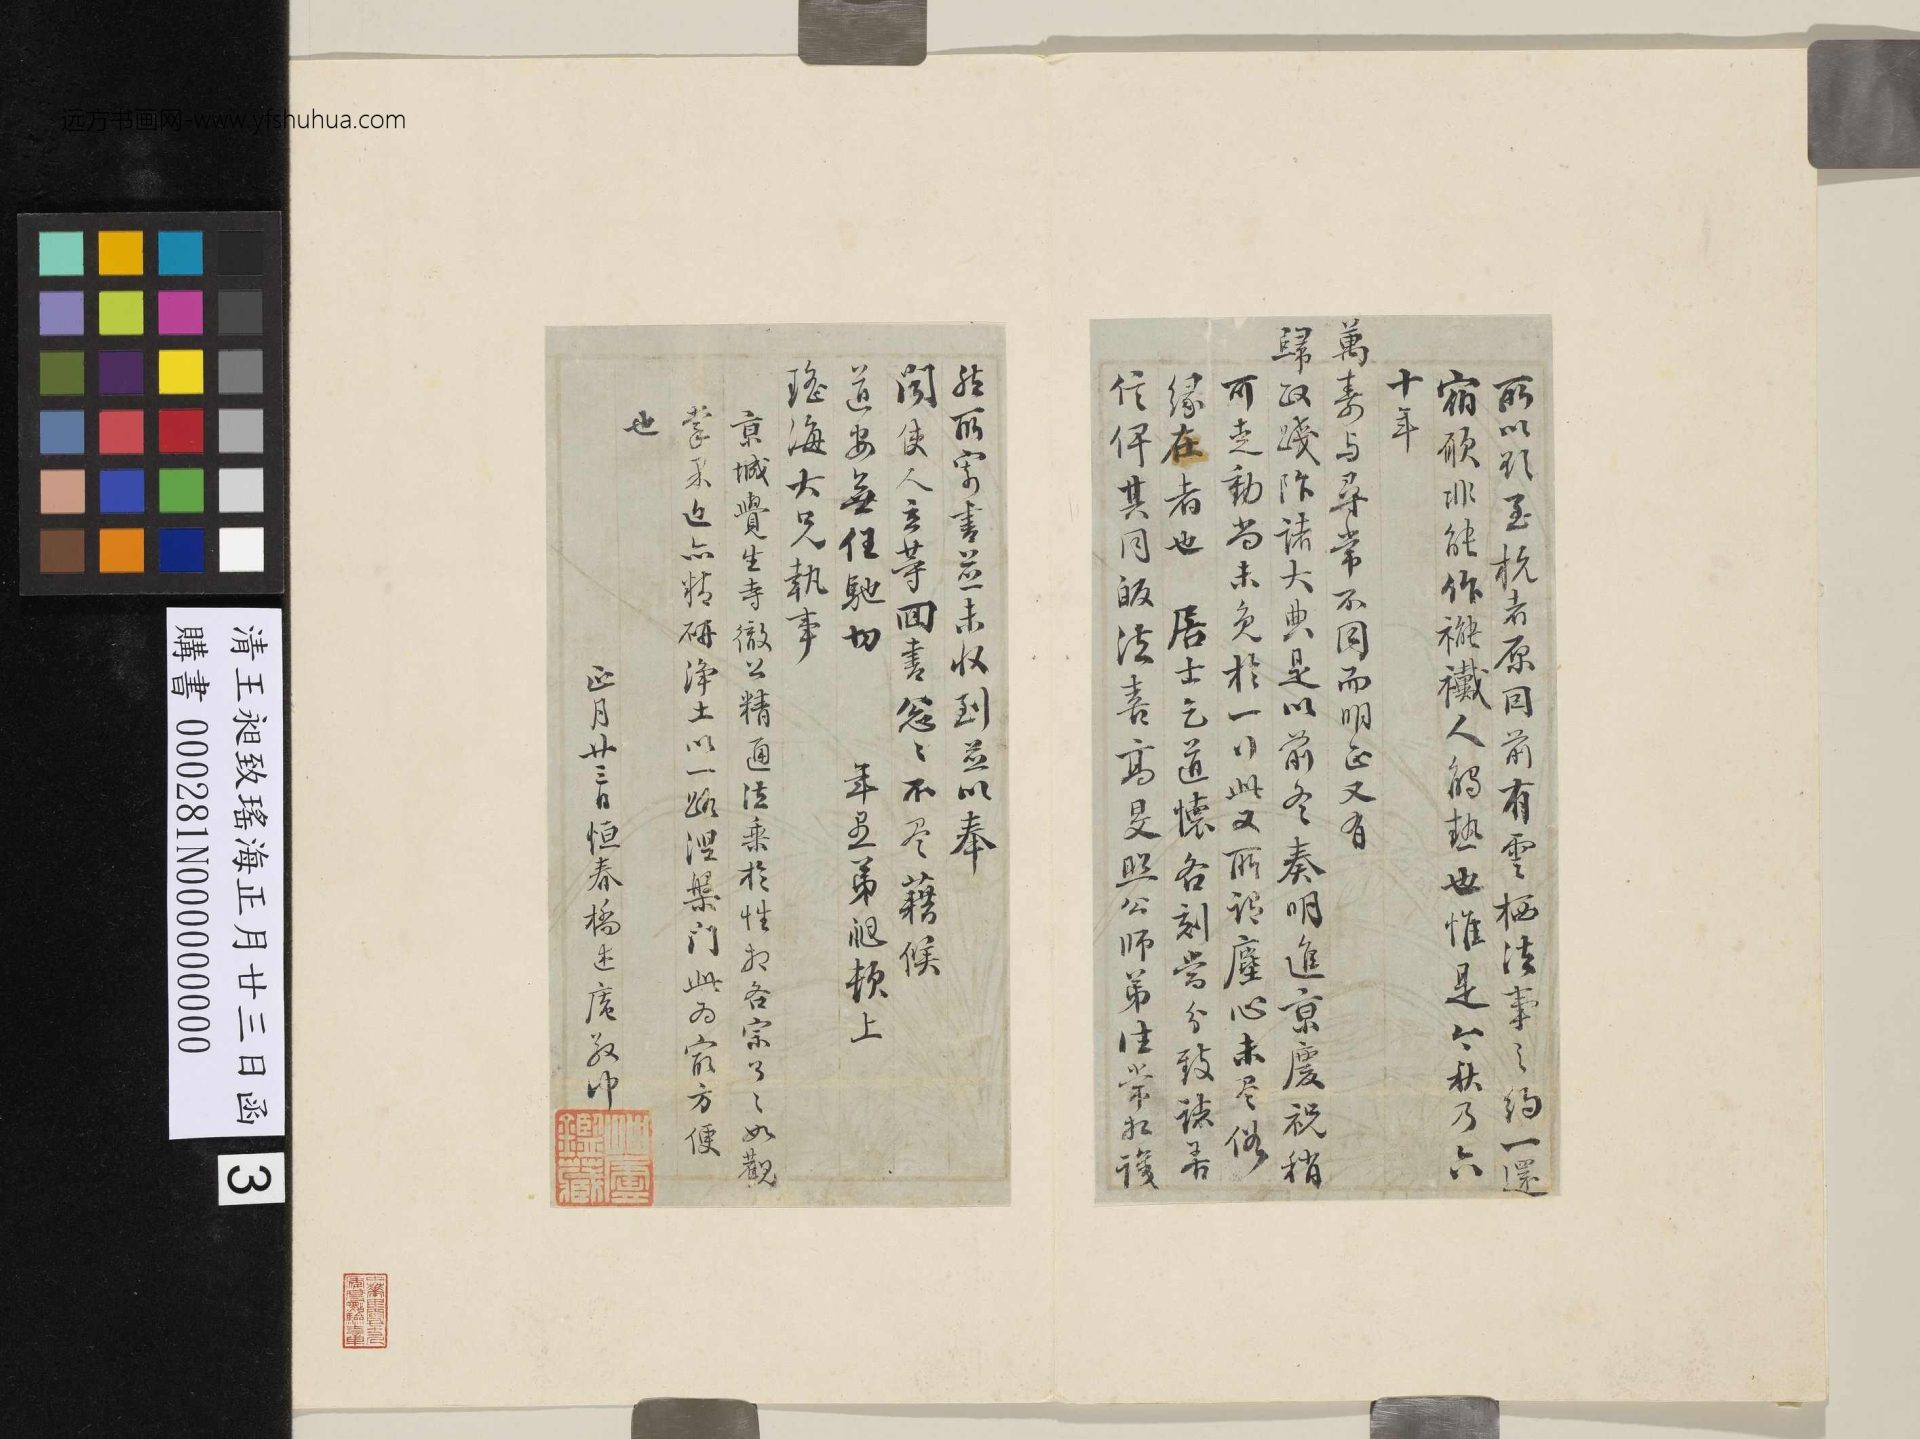 远方书画网-www.yfshuhua.com
清王昶致瑤海正月廿三日函
購書 000281N000000000
3
所以欲至杭者原因前有雲栖法事之約一還
宿願非能作褦襶人觸熱也惟是今秋乃六
十年
萬壽与尋常不同而明正又有
歸政踐阼諸大典是以前冬奏明進京慶祝稍
可走動尚未免於一行此又所謂塵心未尽俗
緣在者也 居士乞道懷各刻嘗分致諸善
信俾其同皈法喜高旻照公師弟往常相
然所寄書並未收到並以奉
聞使人立等回書怱〻不尽藉候
道安無任馳切 年愚弟昶頓上
瑤海大兄執事
京城覺生寺徹公精通法乘於性相各宗了了如觀
掌果近亦精研淨土以一路涅槃門此為最方便
也
正月廿三日恒春橋